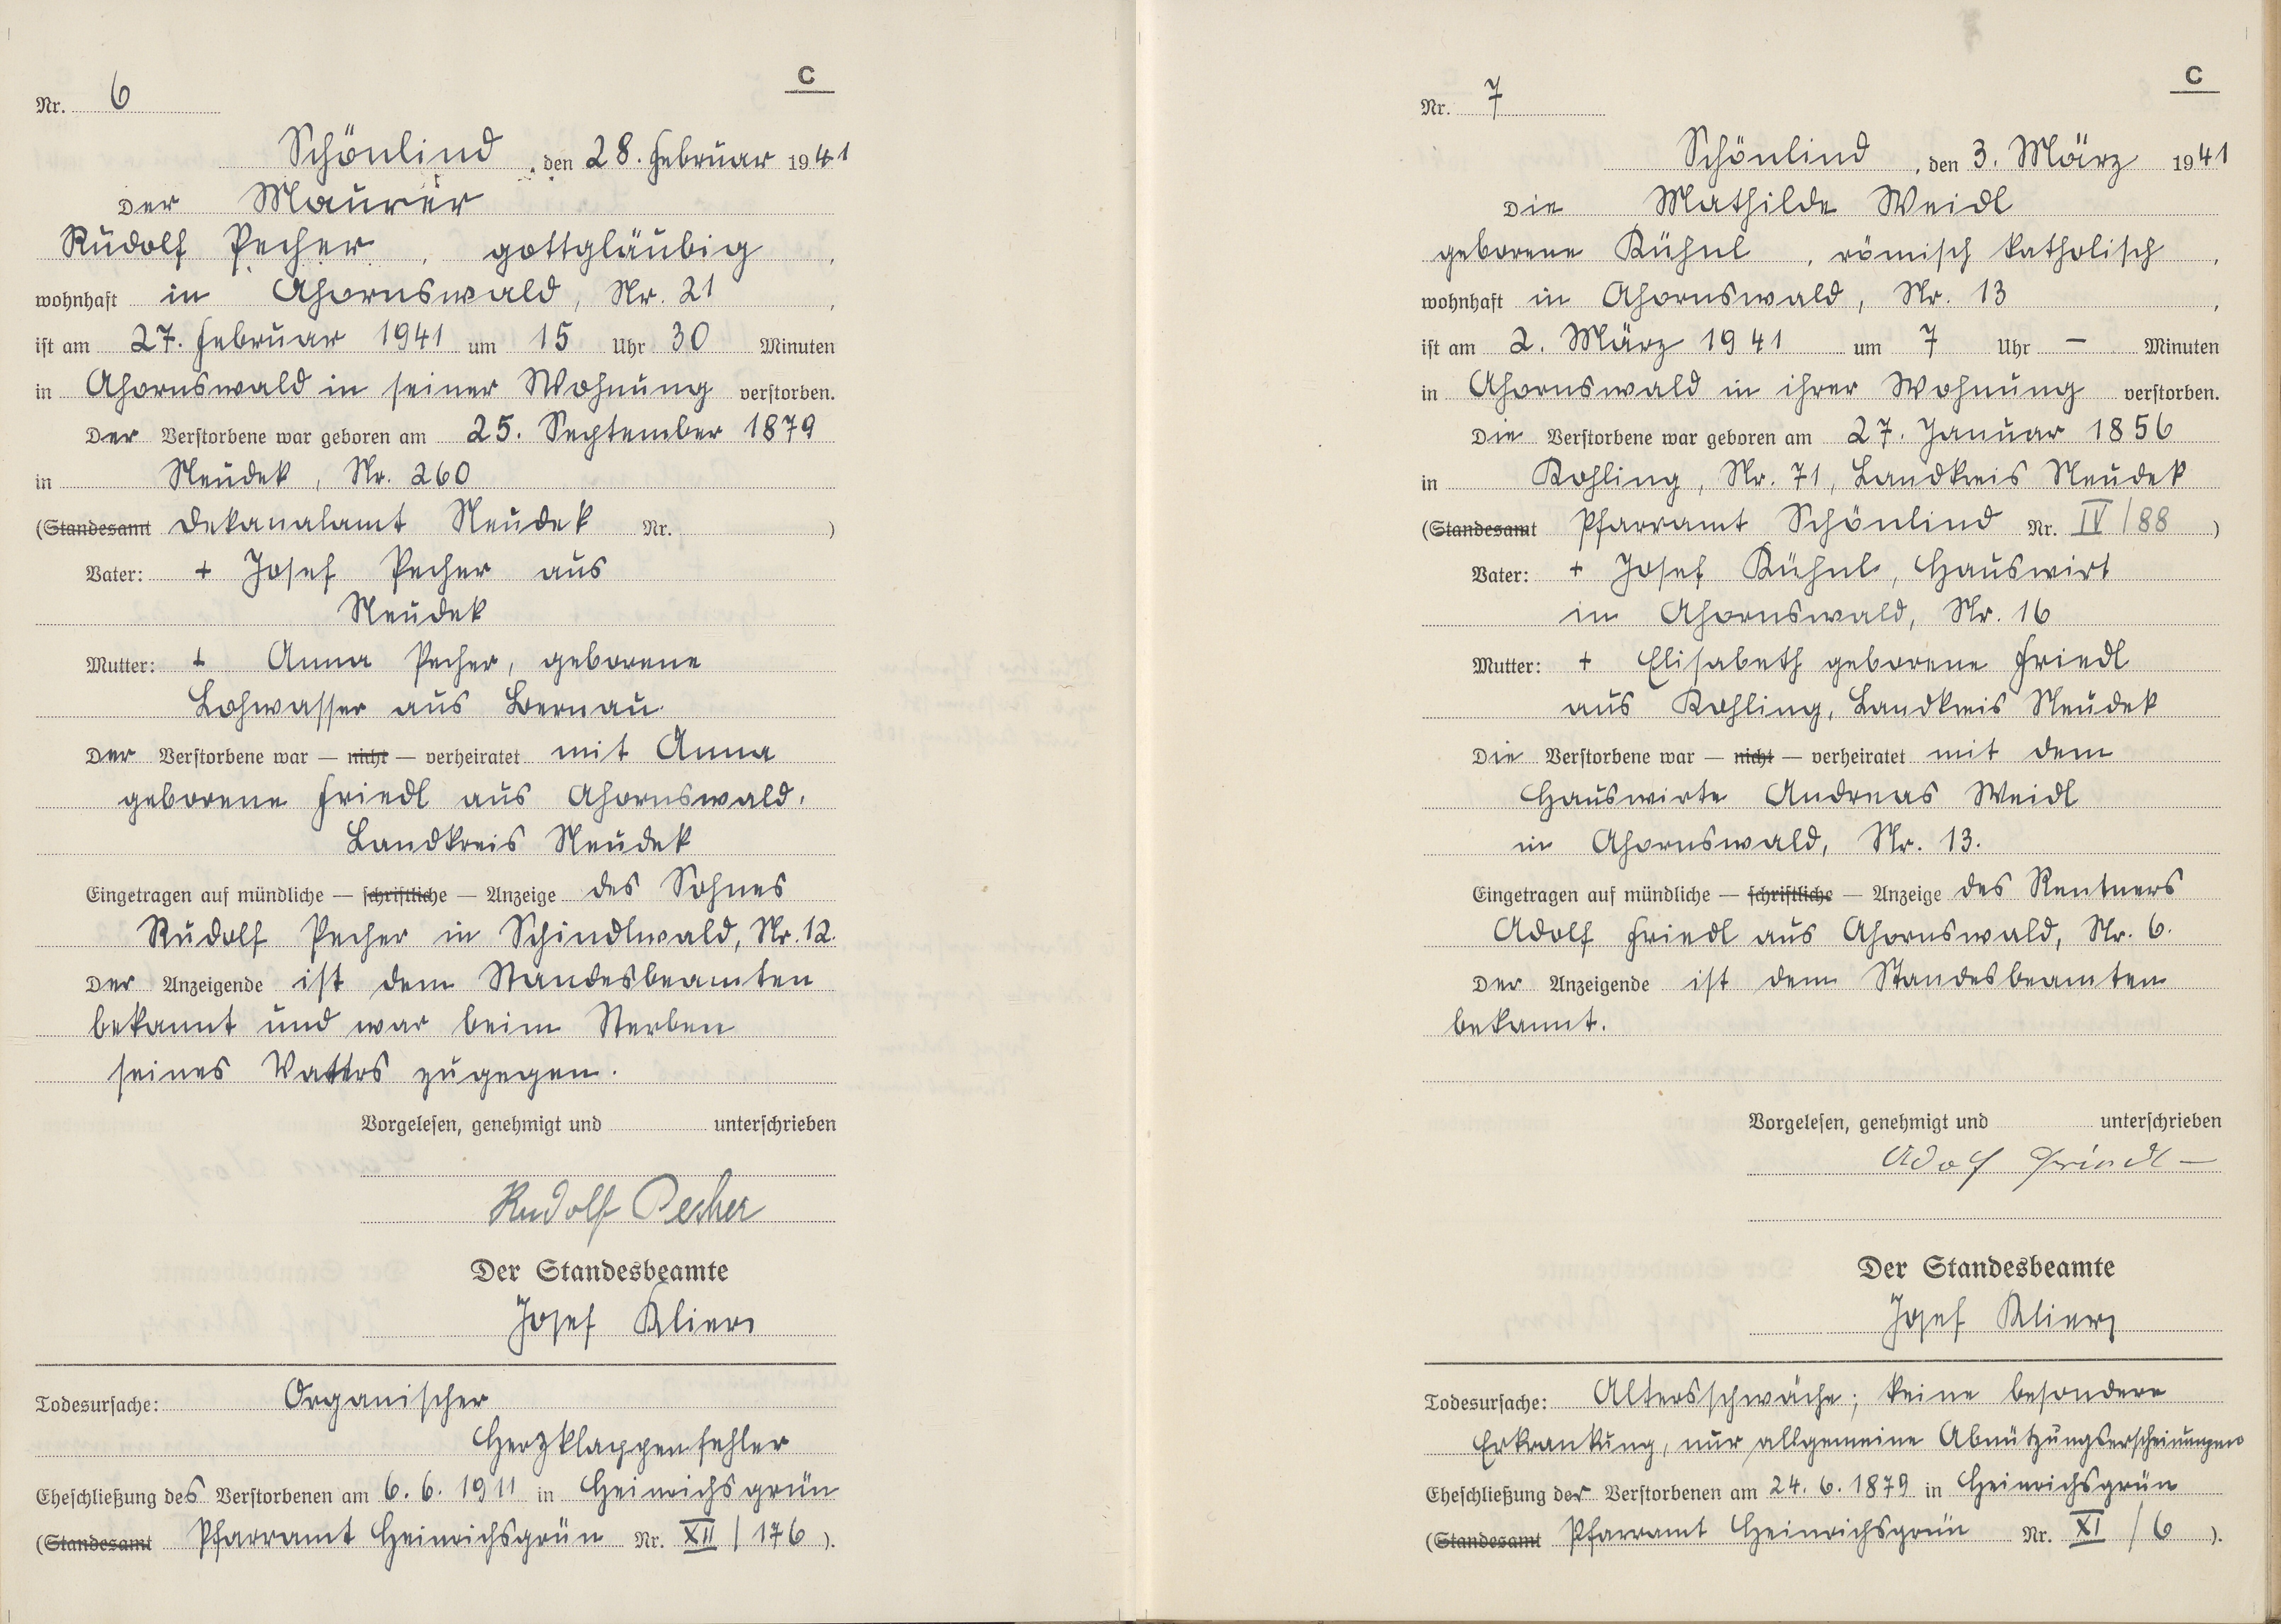 C
Nr. 6
Schönlind, den 28. Februar 1941
Der Maurer
Rudolf Pecher, gottgläubig,
wohnhaft in Ahornswald, Nr. 21,
ist am 27. Februar 1941 um 15 Uhr 30 Minuten
in Ahornswald in seiner Wohnung verstorben.
Der Verstorbene war geboren am 25. September 1879
in Neudek, Nr. 260
(Standesamt Dekanalamt Neudek Nr. )
Vater: + Josef Pecher aus
Neudek
Mutter: + Anna Pecher, geborene
Lohwasser aus Bernau.
Der Verstorbene war — nicht — verheiratet mit Anna
geborene Friedl aus Ahornswald,
Landkreis Neudek
Eingetragen auf mündliche — schriftliche — Anzeige des Sohnes
Rudolf Pecher in Schindlwald, Nr. 12.
Der Anzeigende ist dem Standesbeamten
bekannt und war beim Sterben
seines Vaters zugegen.
Vorgelesen, genehmigt und unterschrieben
Rudolf Pecher
Der Standesbeamte
Josef Klier
Todesursache: Organischer
Herzklappenfehler
Eheschließung des Verstorbenen am 6. 6. 1911 in Heinrichsgrün
(Standesamt Pfarramt Heinrichsgrün Nr. XII / 176 ).
C
Nr. 7
Schönlind, den 3. März 1941
Die Mathilde Weidl
geborene Kühnl, römisch katholisch,
wohnhaft in Ahornswald, Nr. 13,
ist am 2. März 1941 um 7 Uhr — Minuten
in Ahornswald in ihrer Wohnung verstorben.
Die Verstorbene war geboren am 27. Januar 1856
in Kohling, Nr. 71, Landkreis Neudek
(Standesamt Pfarramt Schönlind Nr. IV / 88 )
Vater: + Josef Kühnl, Hauswirt
in Ahornswald, Nr. 16
Mutter: + Elisabeth geborene Friedl
aus Kohling, Landkreis Neudek
Die Verstorbene war — nicht — verheiratet mit dem
Hauswirte Andreas Weidl
in Ahornswald, Nr. 13.
Eingetragen auf mündliche — schriftliche — Anzeige des Rentners
Adolf Friedl aus Ahornswald, Nr. 6.
Der Anzeigende ist dem Standesbeamten
bekannt.
Vorgelesen, genehmigt und unterschrieben
Adolf Friedl
Der Standesbeamte
Josef Klier
Todesursache: Altersschwäche; keine besondere
Erkrankung, nur allgemeine Abnützungserscheinungen
Eheschließung der Verstorbenen am 24. 6. 1879 in Heinrichsgrün
(Standesamt Pfarramt Heinrichsgrün Nr. XI / 6 ).